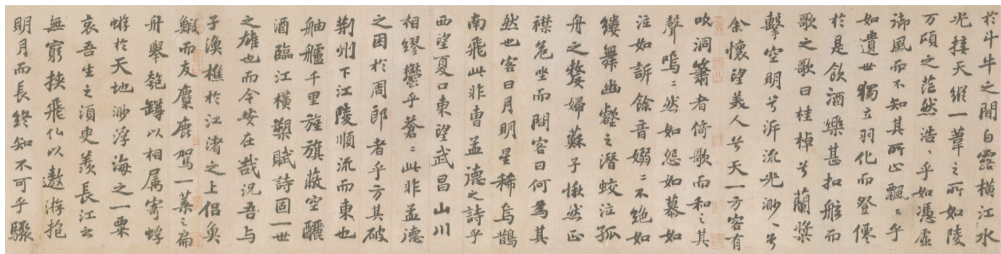 於斗牛之間白露橫江水
光接天縱一葦之所如陵
万頃之茫然浩〻乎如憑虛
御風而不知其所止飄〻乎
如遺世獨立羽化而登僊
於是飲酒樂甚扣舷而
歌之歌曰桂棹兮蘭槳
擊空明兮泝流光渺〻兮
余懷望美人兮天一方客有
吹洞簫者倚歌而和之其
聲嗚〻然如怨如慕如
泣如訴餘音嫋〻不絕如
縷舞幽壑之潛蛟泣孤
舟之嫠婦蘇子愀然正
襟危坐而問客曰何為其
然也客曰月明星稀烏鵲
南飛此非曹孟德之詩乎
西望夏口東望武昌山川
相繆鬱乎蒼〻此非孟德
之困於周郎者乎方其破
荊州下江陵順流而東也
舳艫千里旌旗蔽空釃
酒臨江橫槊賦詩固一世
之雄也而今安在哉況吾与
子漁樵於江渚之上侶魚
鰕而友麋鹿駕一葉之扁
舟舉匏罇以相属寄蜉
蝣於天地渺浮海之一粟
哀吾生之須臾羨長江之
無窮挾飛仙以遨游抱
明月而長終知不可乎驟